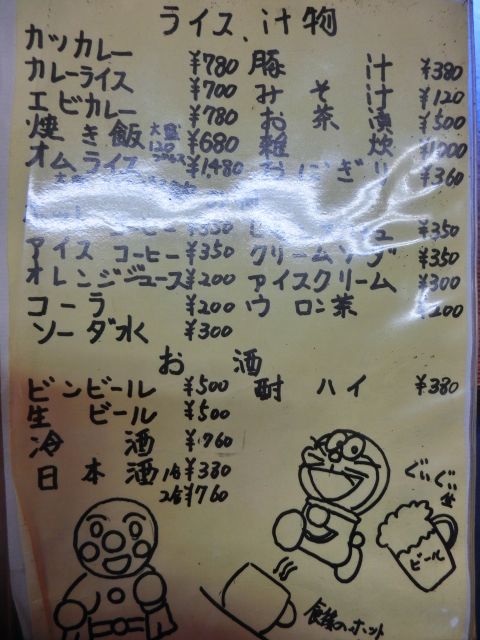 ライス、汁物
カツカレー ¥780
カレーライス ¥700
エビカレー ¥780
焼き飯 大盛 120 プラス ¥680
オムライス ¥1,480
豚汁 ¥380
みそ汁 ¥120
お茶漬 ¥500
雑炊
おにぎり ¥360
コーヒー ¥350
アイスコーヒー ¥350
オレンジジュース ¥200
コーラ ¥200
ソーダ水 ¥300
¥350
クリームソーダ ¥350
アイスクリーム ¥300
ウーロン茶 ¥200
お酒
ビンビール ¥500
生ビール ¥500
冷酒 ¥760
日本酒 1合 ¥380
2合 ¥760
酎ハイ ¥380
ぐいぐい
ビール
食後のホット